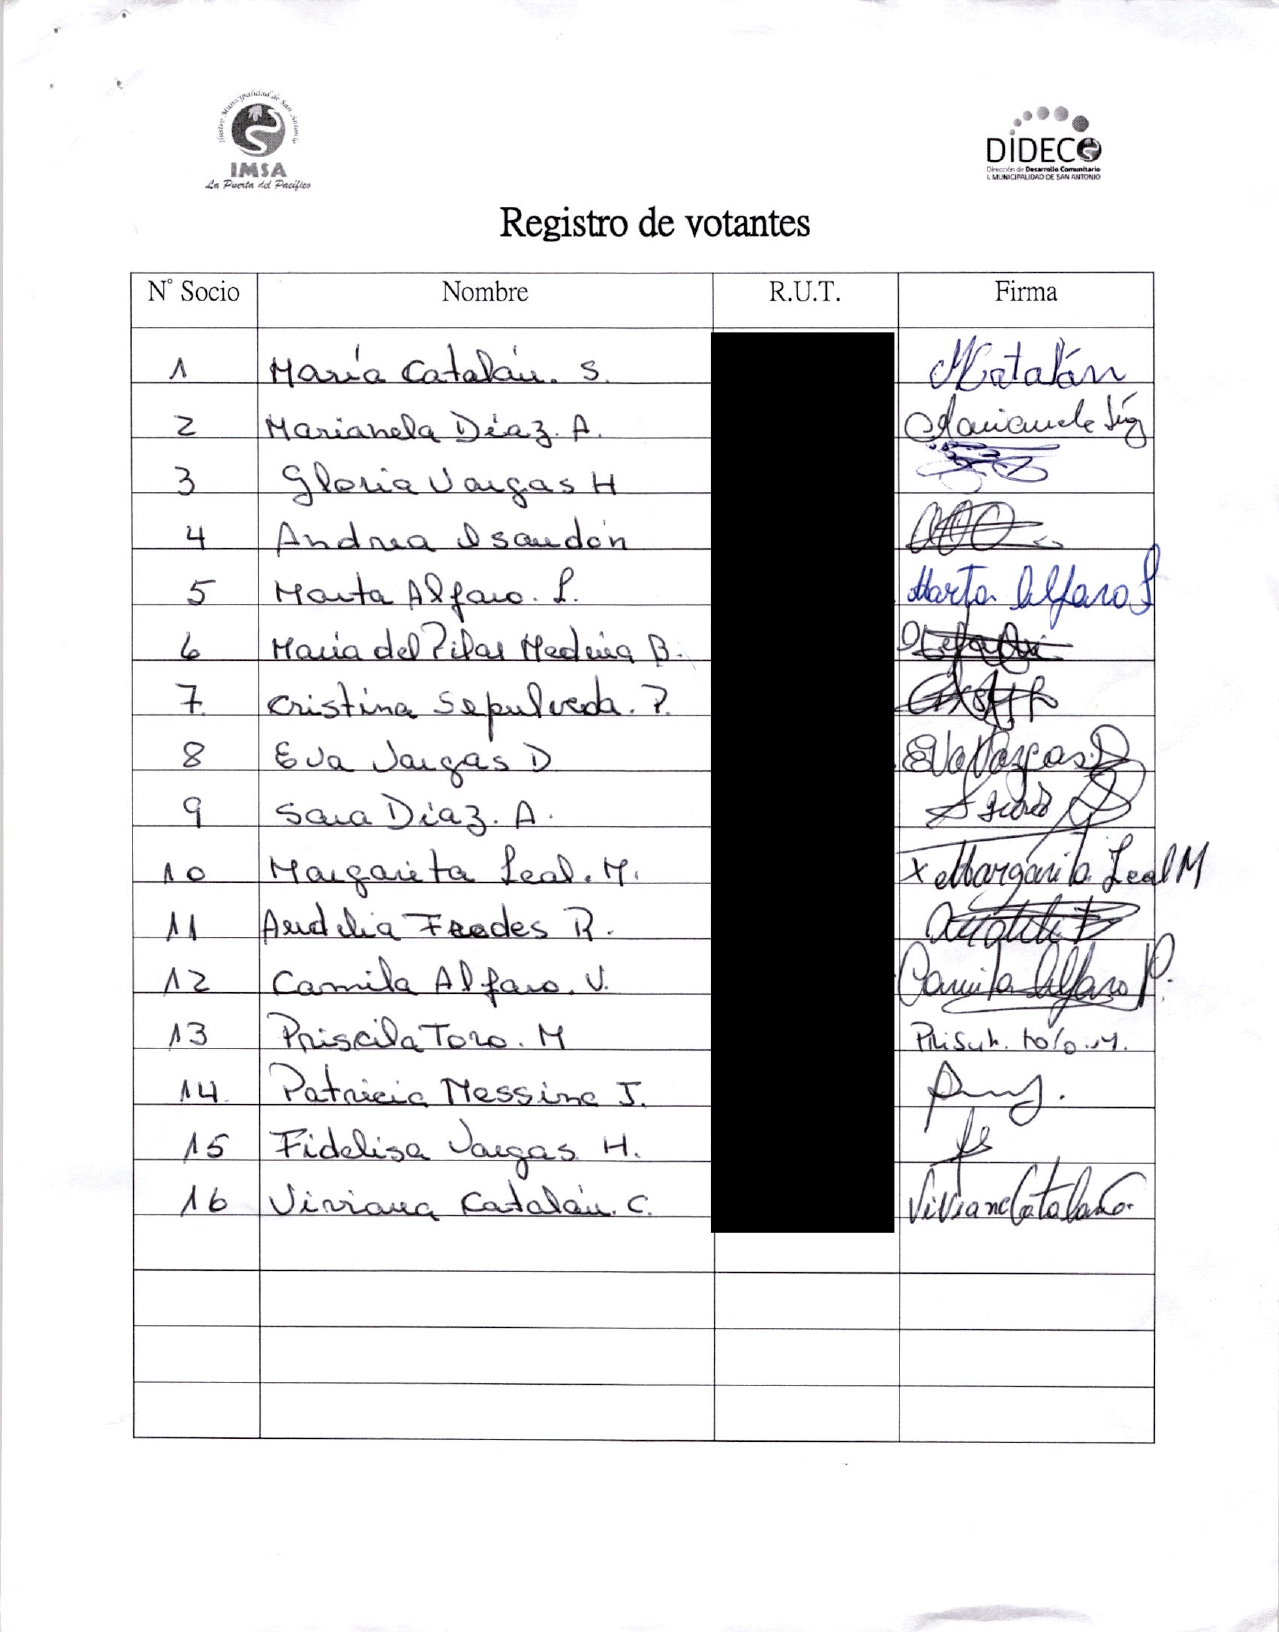 Ilustre Municipalidad de San Antonio
IMSA
La Puerta del Pacífico
DIDECO
Dirección de Desarrollo Comunitario
I. MUNICIPALIDAD DE SAN ANTONIO
Registro de votantes
N° Socio Nombre R.U.T. Firma
1 María Catalán. S. MCatalán
2 Marianela Díaz. A. Marianela Díaz
3 Gloria Vargas H
4 Andrea Isaudón
5 Marta Alfaro. L. Marta Alfaro L
6 María del Pilar Medina B.
7. Cristina Sepulveda. P.
8 Eva Vargas D Eva Vargas D
9 Sara Díaz. A.
10 Margarita Leal. M. x Margarita Leal M
11 R.
12 Camila Alfaro. V. Camila Alfaro
13 Priscila Toro. M Toro. M.
14. Patricia Messina J.
15 Fidelisa Vargas H.
16 Viviana Catalán. C. Viviana Catalan